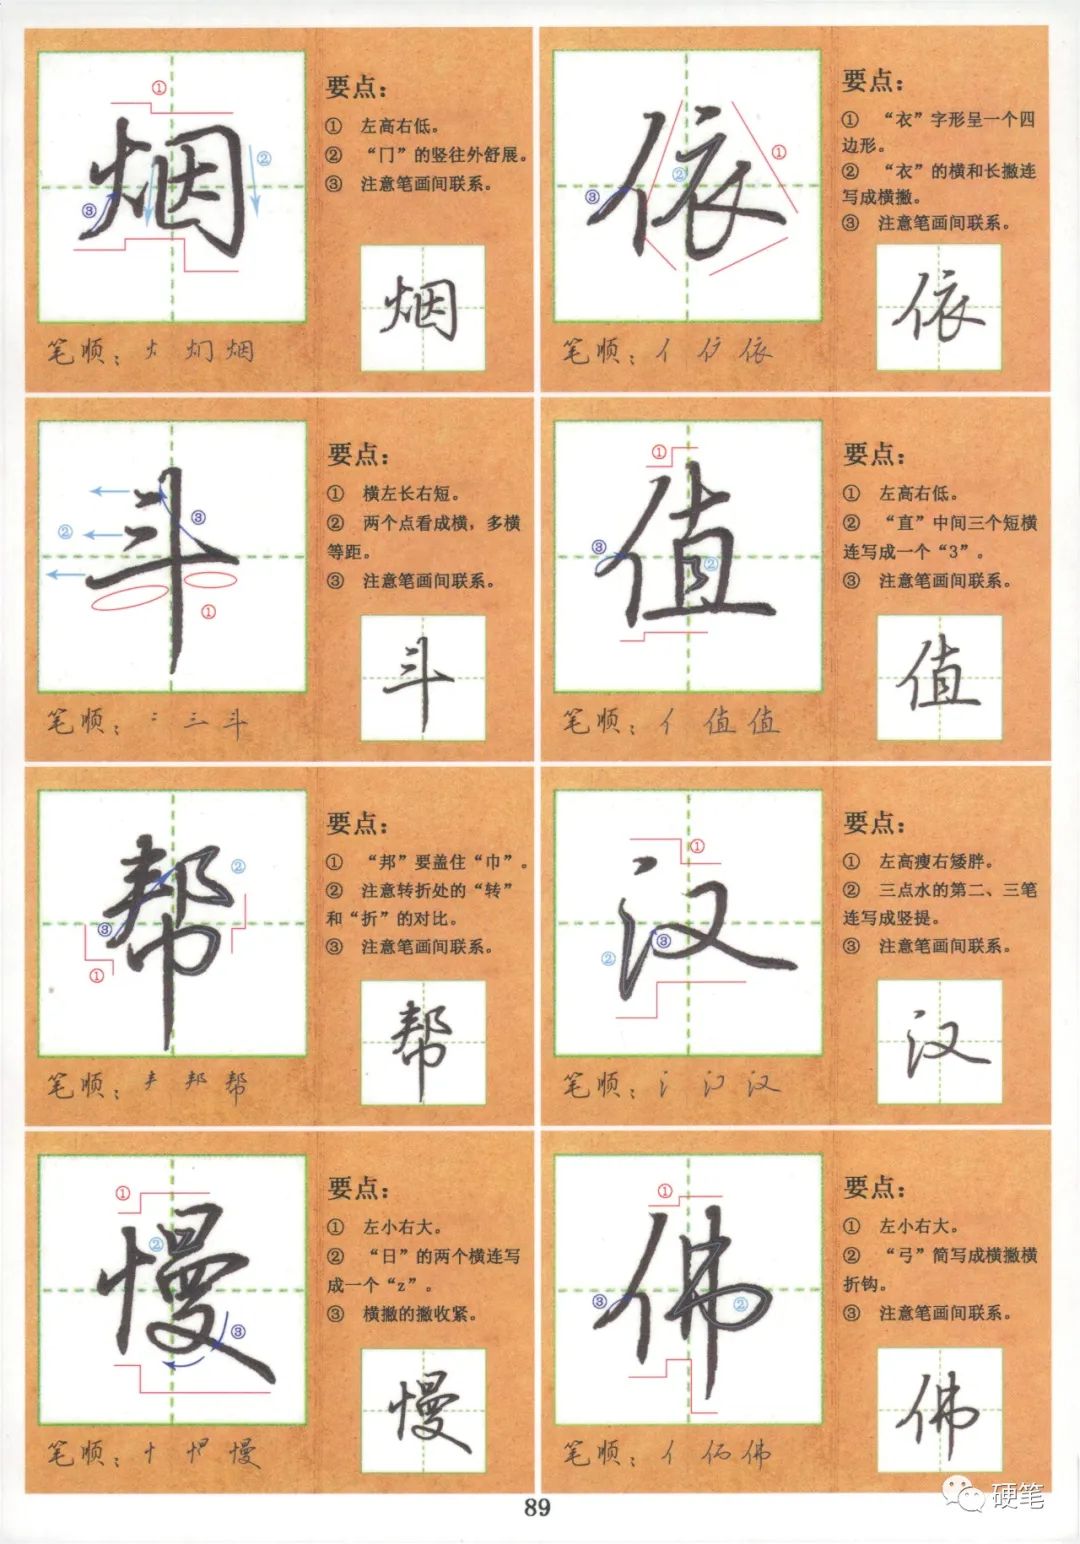 烟
要点：
① 左高右低。
② “门”的竖往外舒展。
③ 注意笔画间联系。
烟
笔顺： 烟
依
要点：
① “衣”字形呈一个四
边形。
② “衣”的横和长撇连
写成横撇。
③ 注意笔画间联系。
依
笔顺：亻 依
斗
要点：
① 横左长右短。
② 两个点看成横，多横
等距。
③ 注意笔画间联系。
斗
笔顺： 斗
值
要点：
① 左高右低。
② “直”中间三个短横
连写成一个“3”。
③ 注意笔画间联系。
值
笔顺：亻 值 值
帮
要点：
① “邦”要盖住“巾”。
② 注意转折处的“转”
和“折”的对比。
③ 注意笔画间联系。
帮
笔顺： 邦 帮
汉
要点：
① 左高瘦右矮胖。
② 三点水的第二、三笔
连写成竖提。
③ 注意笔画间联系。
汉
笔顺：氵 汉
慢
要点：
① 左小右大。
② “日”的两个横连写
成一个“z”。
③ 横撇的撇收紧。
慢
笔顺：忄 慢
佛
要点：
① 左小右大。
② “弓”简写成横撇横
折钩。
③ 注意笔画间联系。
佛
笔顺：亻 佛
89
硬笔